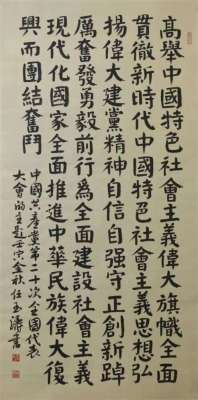 高舉中國特色社會主義偉大旗幟全面
貫徹新時代中國特色社會主義思想弘
揚偉大建黨精神自信自强守正創新踔
厲奮發勇毅前行為全面建設社會主義
現代化國家全面推進中華民族偉大復
興而團結奮鬥
中國共產黨第二十次全國代表
大會的主題壬寅金秋任玉濤書